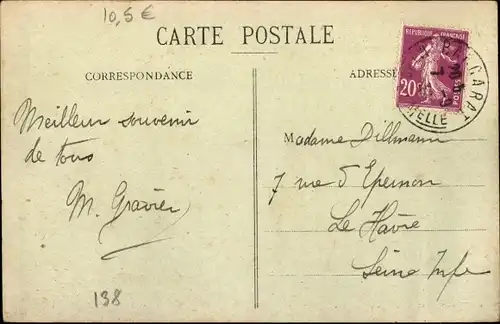 10,5 €
CARTE POSTALE
CORRESPONDANCE
ADRESSE
REPUBLIQUE FRANÇAISE
20c
POSTES
BACCARAT
MLLE
Meilleur souvenir
de tous
M. Gravier
Madame Dillmann
7 rue d'Epernon
Le Havre
Seine Infre
138